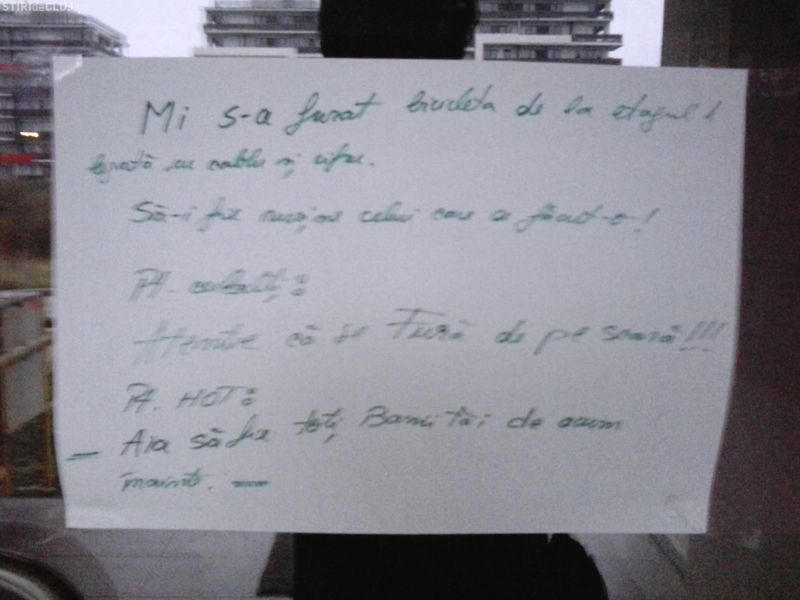 ȘTIRI de CLUJ
Mi s-a furat bicicleta de la etajul 1
legată cu cablu și cifru.
Să-i fie rușine celui care a făcut-o!
Pt.
Atentie că se Fură de pe scară!!!
Pt. HOT:
— Aia să fie toți Banii tăi de acum
înainte. —